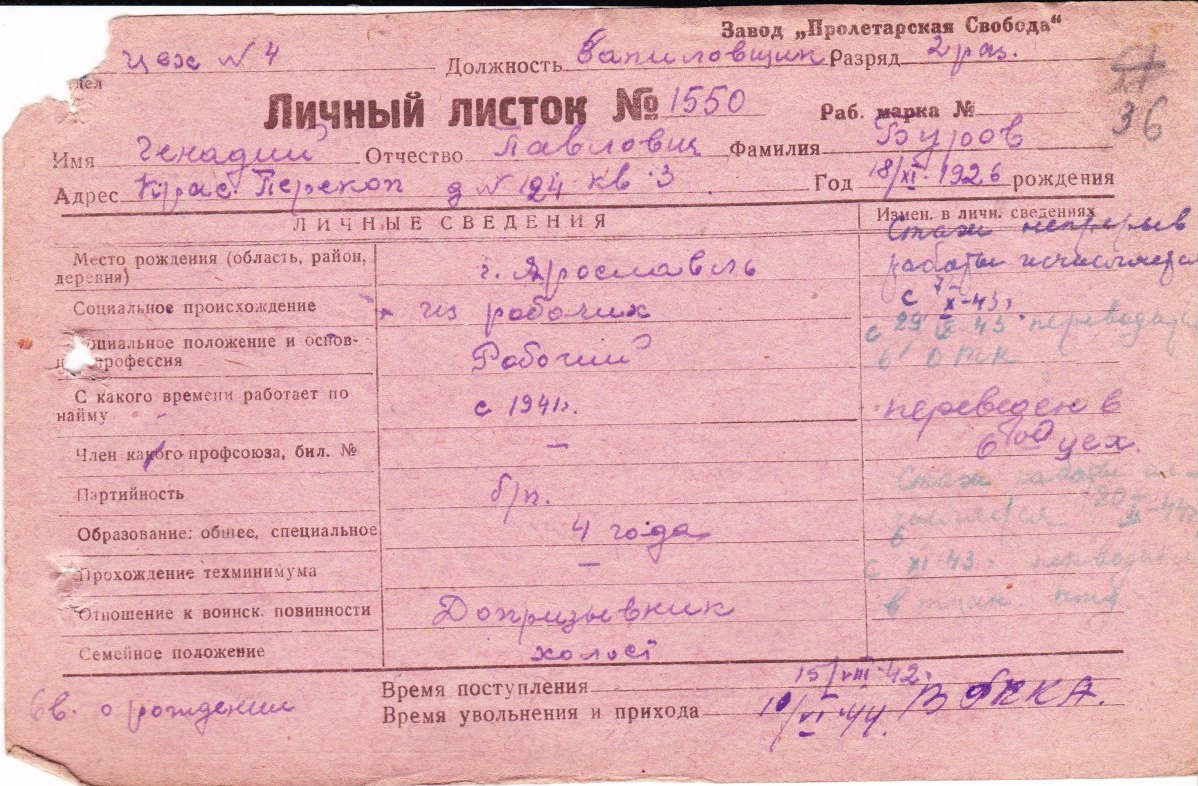 Завод „Пролетарская Свобода“
дел цех N 4 Должность Запиловщик Разряд 2 раз.
Личный листок № 1550 Раб. марка №
36
Имя Генадий Отчество Павлович Фамилия Буров
Адрес Крас. Перекоп д N 124 кв 3 Год 18/XI 1926 рождения
ЛИЧНЫЕ СВЕДЕНИЯ Измен. в личн. сведениях
Место рождения (область, район, деревня) г. Ярославль
Стаж непрерыв
работы исчисляется
с 7/X-43г.
Социальное происхождение из рабочих
с 29 X 43 переводится
в ОТК
оциальное положение и основ-
профессия Рабочий
С какого времени работает по найму с 1941г.
переведен в
6ой цех.
Член какого профсоюза, бил. № —
Партийность б/п.
Стаж работы
Образование: общее, специальное 4 года
с XI 43. переводится
в
Прохождение техминимума —
Отношение к воинск. повинности Допризывник
Семейное положение холост
Св. о рождении
Время поступления 15/VIII-42.
Время увольнения и прихода 10/VI-44 В РККА.